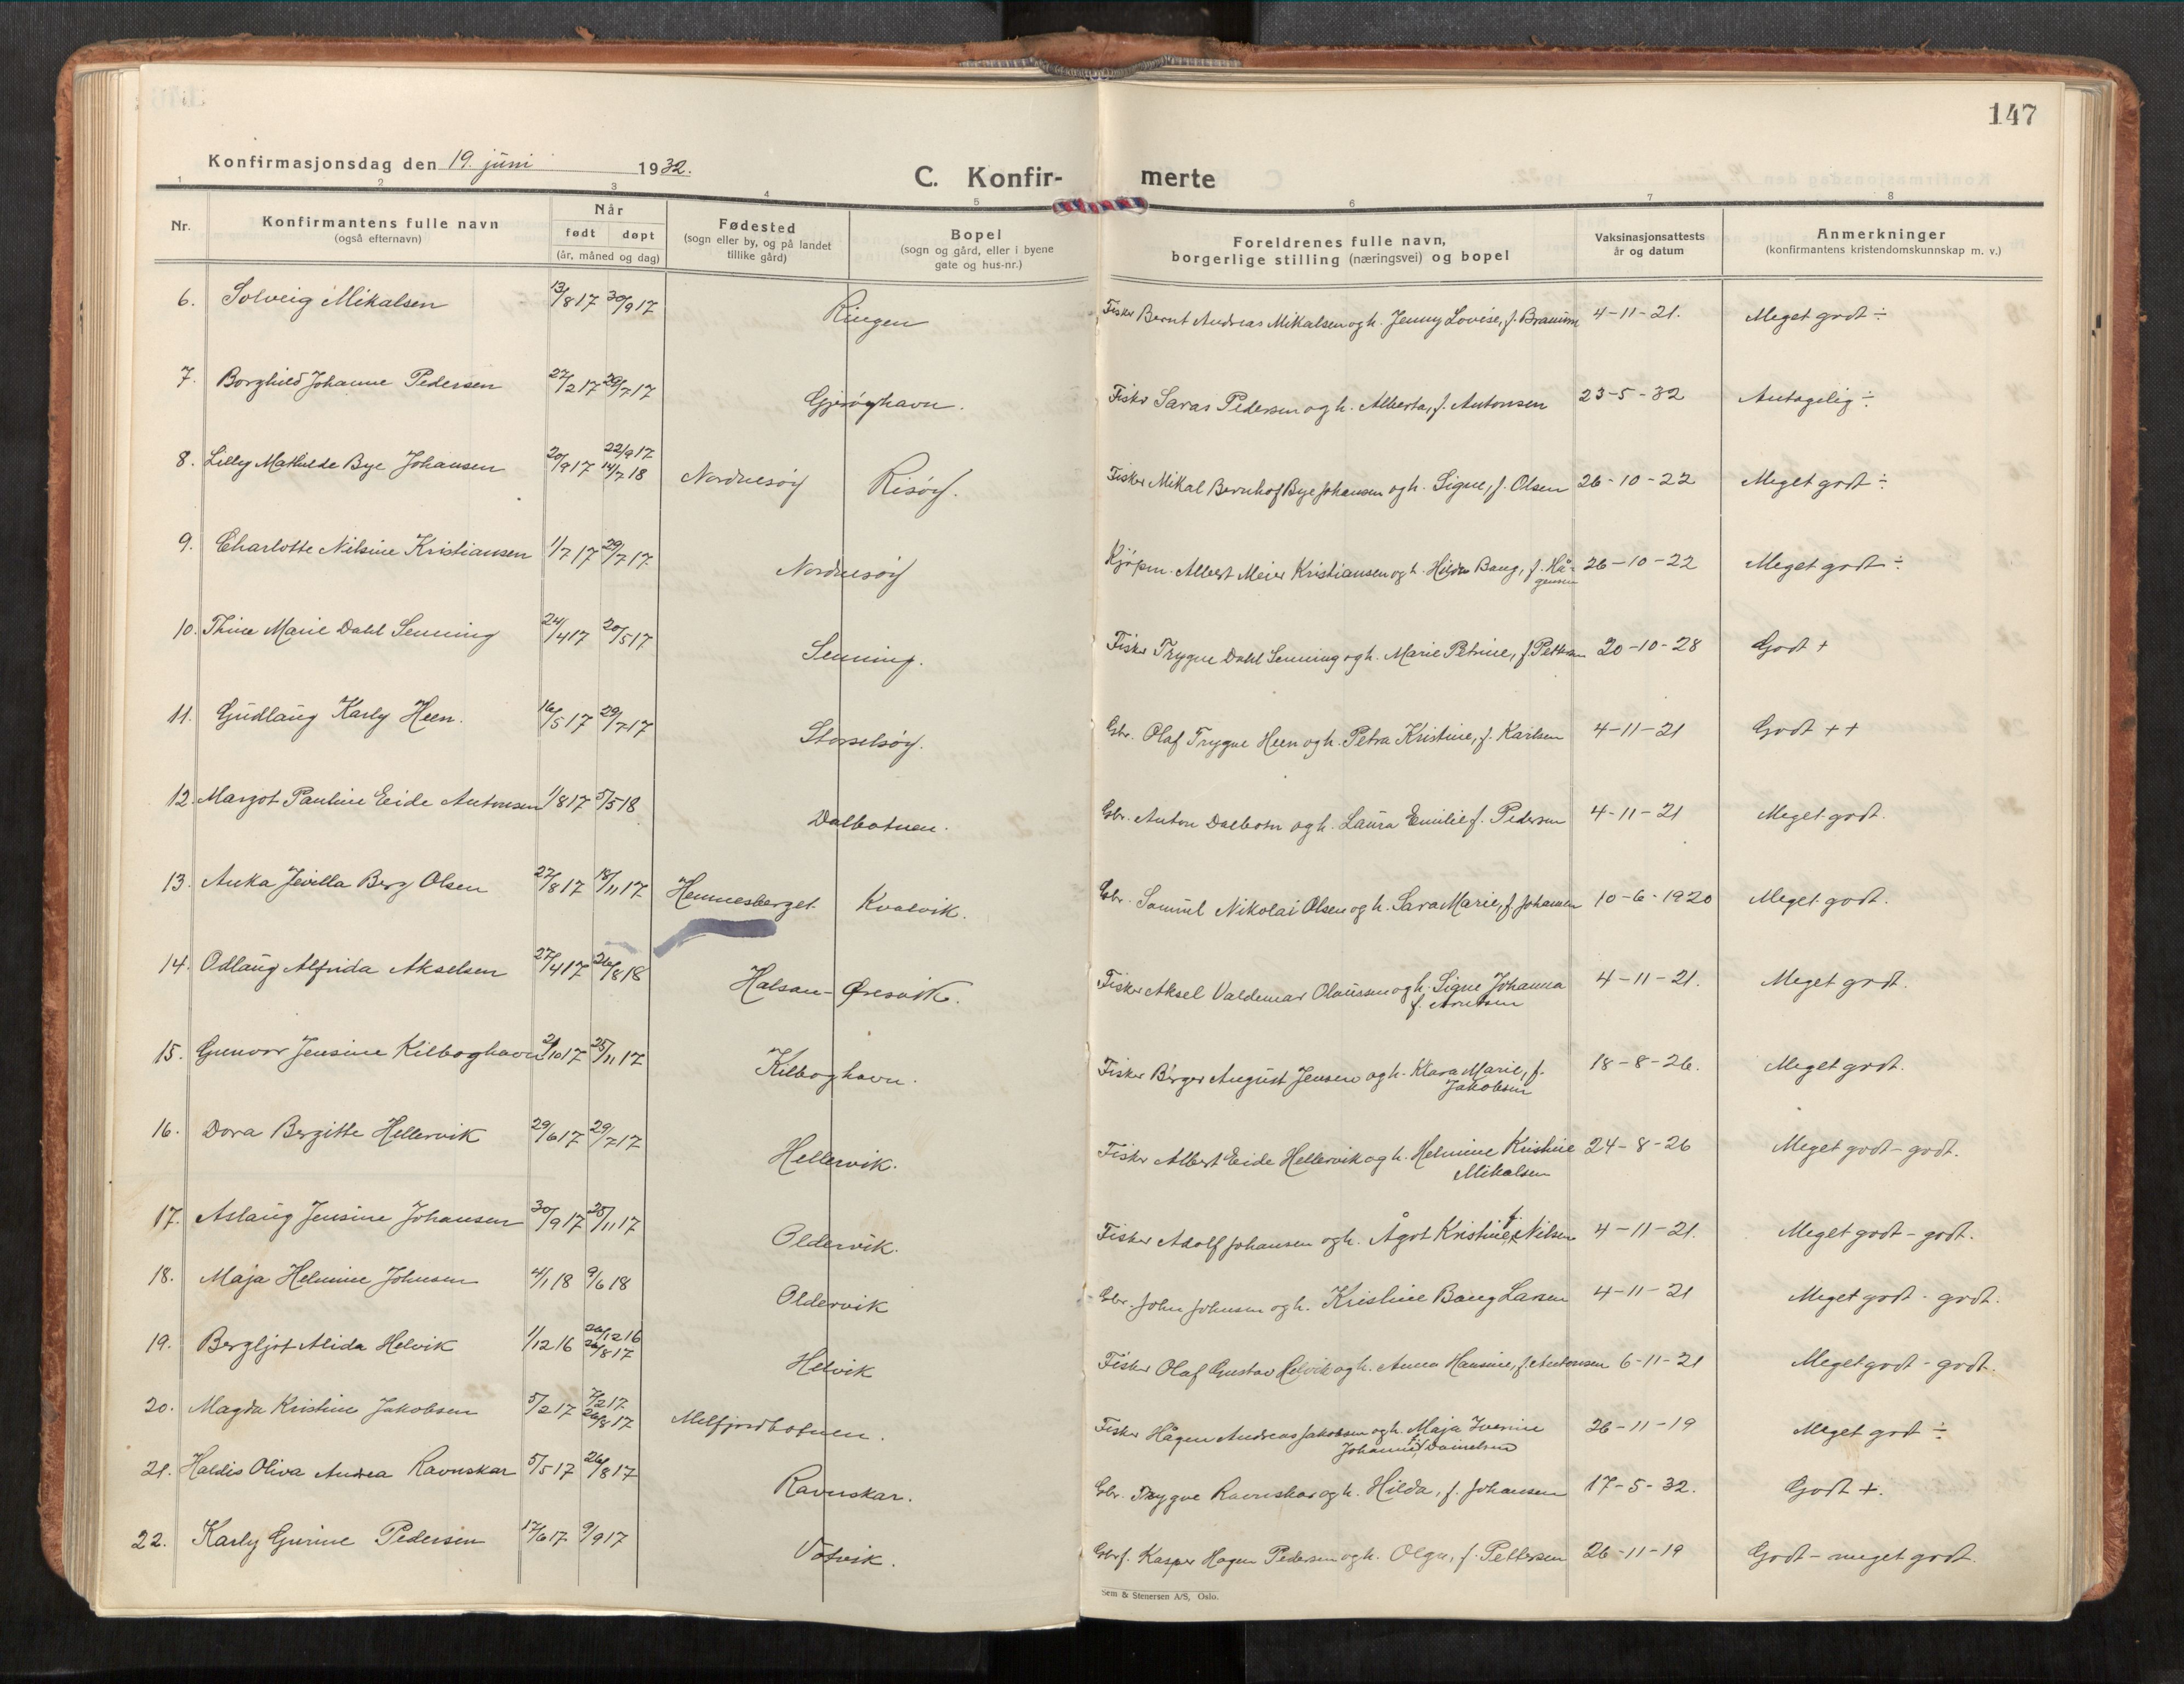 147
Konfirmasjonsdag den 19. juni 1932.
C. Konfirmerte
1 2 3 4 5 6 7 8
Nr.
Konfirmantens fulle navn
(også efternavn)
Når
født døpt
(år, måned og dag)
Fødested
(sogn eller by, og på landet
tillike gård)
Bopel
(sogn og gård, eller i byene
gate og hus-nr.)
Foreldrenes fulle navn,
borgerlige stilling (næringsvei) og bopel
Vaksinasjonsattests
år og datum
Anmerkninger
(konfirmantens kristendomskunnskap m. v.)
6. Solveig Mikalsen 13/8 17 30/9 17 Ringen Fisker Bernt Andreas Mikalsen og h. Jenny Lovise, f. 4-11-21. Meget godt ÷
7. Borghild Johanne Pedersen 27/2 17 29/7 17 Gjerøyhavn. Fisker Saras Pedersen og h. Alberta, f. Antonsen 23-5-32 Antagelig ÷
8. Lilly Mathilde Bye Johansen 20/9 17 22/9 17 14/7 18 Nordnesøy Risøy. Fisker Mikal Bernhof Bye Johansen og h. Signe, f. Olsen 26-10-22 Meget godt ÷
9. Charlotte Nilsine Kristiansen 1/7 17 29/7 17 Nordnesøy Kjøpm. Albert Meier Kristiansen og h. Hilda Bang, f. Hågensen 26-10-22 Meget godt ÷
10. Thine Marie Dahl Senning 24/4 17 20/5 17 Senning. Fisker Trygve Dahl Senning og h. Marie Petrine, f. 20-10-28 Godt +
11. Gudlaug Karly Heen. 16/5 17 29/7 17 Storselsøy. Gbr. Olaf Trygve Heen og h. Petra Kristine, f. Karlsen 4-11-21 Godt ++
12. Margot Pauline Eide Antonsen 1/8 17 5/5 18 Dalbotnen. Gbr. Anton Dalbotn og h. Laura Emilie f. Pedersen 4-11-21 Meget godt.
13. Anka Jevilla Berg Olsen 27/8 17 18/11 17 Hemnesberget Kvalvik. Gbr. Samuel Nikolai Olsen og h. Sara Marie, f. Johansen 10-6-1920 Meget godt.
14. Odlaug Alfrida Akselsen 27/4 17 26/8 18 Halsan-Øresvik. Fisker Aksel Valdemar Olaussen og h. Signe Johanna
f. Arntsen 4-11-21. Meget godt.
15. Gunvor Jensine Kilboghavn 2/10 17 25/11 17 Kilboghavn. Fisker Birger August Jensen og h. Klara Marie, f.
Jakobsen 18-8-26. Meget godt.
16. Dora Bergitte Hellervik 29/6 17 29/7 17 Hellervik. Fisker Albert Eide Hellervik og h. Helmine Kristine
Mikalsen 24-8-26 Meget godt-godt.
17. Aslaug Jensine Johansen 30/9 17 25/11 17 Oldervik. Fisker Adolf Johansen og h. Ågot Kristine f. Nilsen 4-11-21. Meget godt-godt.
18. Maja Helmine Johnsen 4/1 18 9/6 18 Oldervik Gbr. John Johnsen og h. Kristine Bang Larsen 4-11-21 Meget godt-godt.
19. Bergljot Alida Helvik 1/12 16 26/12 16 26/8 17 Helvik Fisker Olaf Gustav Helvik og h. Anna Hansine, f. Antonsen 6-11-21 Meget godt-godt.
20. Magda Kristine Jakobsen 5/2 17 7/2 17 26/8 17 Melfjordbotnen. Fisker Hågen Andreas Jakobsen og h. Maja Iverine
Johanne f. 26-11-19 Meget godt ÷
21. Haldis Oliva Andrea Ravnskar 5/5 17 26/8 17 Ravnskar. Gbr. Trygve Ravnskar og h. Hilda, f. Johansen 17-5-32. Godt +.
22. Karly Gurine Pedersen 17/6 17 9/9 17 Våtvik. Gbr. Kasper Hagen Pedersen og h. Olga, f. Pettersen 26-11-19 Godt-meget godt.
Sem & Stenersen A/S, Oslo.